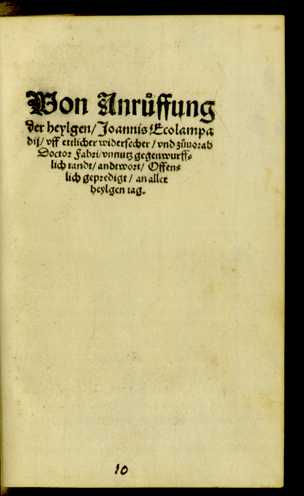 Von Anrůffung
der heylgen/ Joannis Ecolampa
dij/ vff ettlicher widersecher/ vnd zůuorab
Doctor Fabri/ vnnutz gegenwurff⸗
lich tandt/ andtwort/ Offen⸗
lich gepredigt/ an aller
heylgen tag.
10